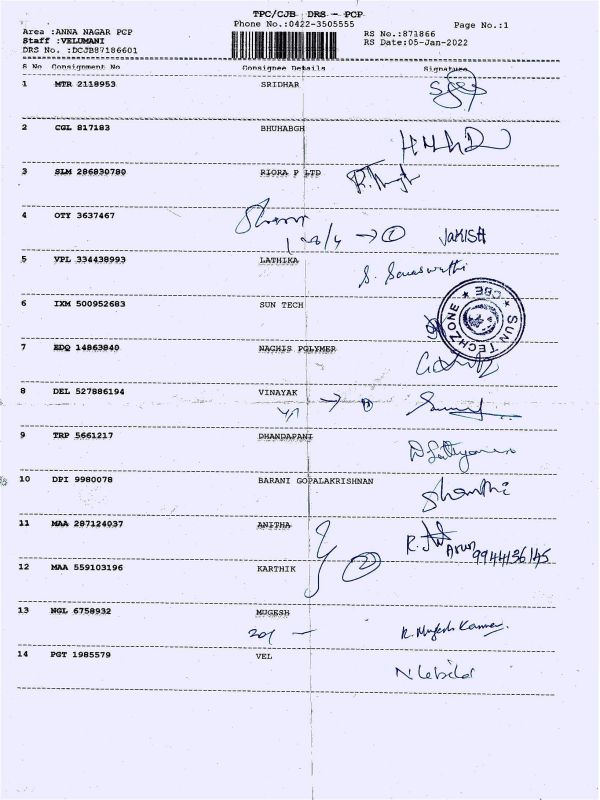 TPC/CJB DRS - PCP
Phone No.:0422-3505555 Page No.:1
Area :ANNA NAGAR PCP RS No.:871866
Staff :VELUMANI RS Date:05-Jan-2022
DRS No. :DCJB87186601
S No Consignment No Consignee Details Signature
1 MTR 2118953 SRIDHAR
2 CGL 817183 BHUHABGH
3 SLM 286830780 RIORA P LTD
4 OTY 3637467 JAKISH
5 VPL 334438993 LATHIKA S. Saraswathi
6 IXM 500952683 SUN TECH
SUN TECHZONE * CBE *
7 EDQ 14863840 NACHIS POLYMER
8 DEL 527886194 VINAYAK
9 TRP 5661217 DHANDAPANI
10 DPI 9980078 BARANI GOPALAKRISHNAN Shanthi
11 MAA 287124037 ANITHA Arun 9944136145
12 MAA 559103196 KARTHIK 2
13 NGL 6758932 MUGESH R. Mugesh Kannan
14 PGT 1985579 VEL